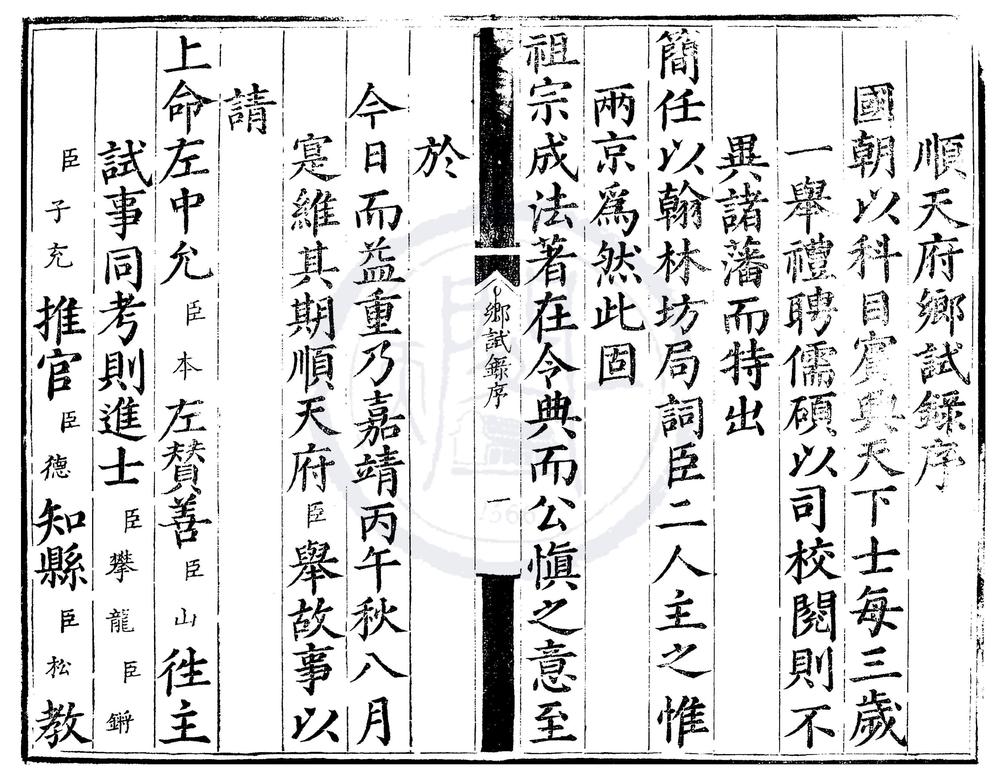 順天府鄉試錄序
國朝以科目賓興天下士每三歲
一舉禮聘儒碩以司校閱則不
異諸藩而特出
簡任以翰林坊局詞臣二人主之惟
兩京爲然此固
祖宗成法著在令典而公慎之意至
鄉試錄序 一
於
今日而益重乃嘉靖丙午秋八月
寔維其期順天府臣舉故事以
請
上命左中允臣本左贊善臣山徃主
試事同考則進士臣攀龍臣鏘
臣子充推官臣德知縣臣松教